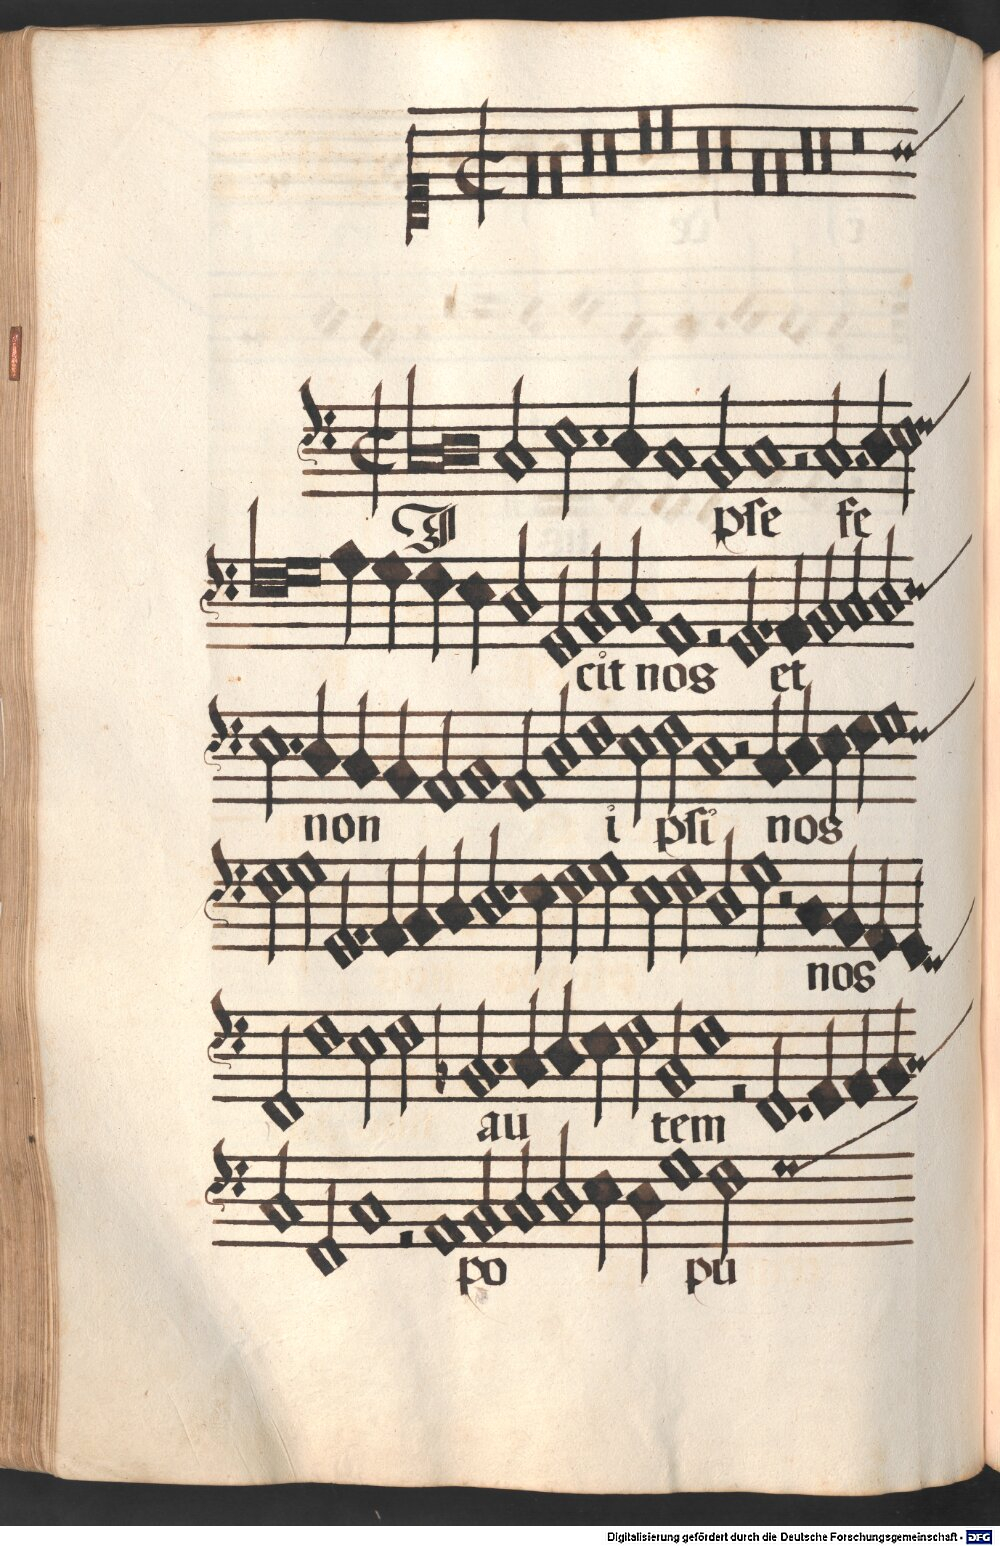 Ipse fe
cit nos et
non i psi nos
nos
au tem
po pu
Digitalisierung gefördert durch die Deutsche Forschungsgemeinschaft - DFG